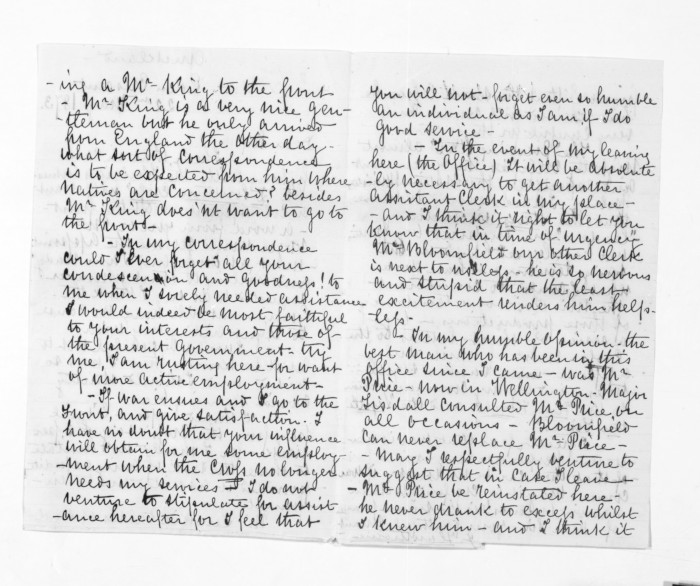 -ing a Mr King to the front
- Mr King is a very nice gen-
tleman but he only arrived
from England the other day.
what sort of correspondence
is to be expected from him where
Natives are concerned? besides
Mr King does'nt want to go to
the front -
- In my correspondence
could I ever forget all your
condescension and goodness! to
me when I sorely needed assistance
I would indeed be most faithful
to your interests and those of
the present Government - try
me, I am rusting here - for want
of more active employment -
- If war ensues and I go to the
front, and give satisfaction. I
have no doubt that your influence
will obtain for me some employ-
-ment when the no longer
needs my services - I do not
venture to stipulate for assist
-ance hereafter for I feel that
you will not - forget even so humble
an individual as I am if I do
good service
- In the event of my leaving
here (the Office) It will be absolute
-ly necessary to get another
assistant Clerk in my place -
- and I think it right to let you
know that in time of "urgency"
Mr Bloomfield our other Clerk
is next to useless - he is so nervous
and stupid that the least
excitement renders him help-
-less -
- In my humble opinion - the
best man who has been in this
office since I came - was Mr
Price - now in Wellington - Major
Tisdall consulted Mr Price, on
all occasions - Bloomfield
can never replace Mr Price -
- May I respectfully venture to
suggest that in case I leave -
- Mr Price be reinstated here -
he never drank to excess whilst
I knew him - and I think it